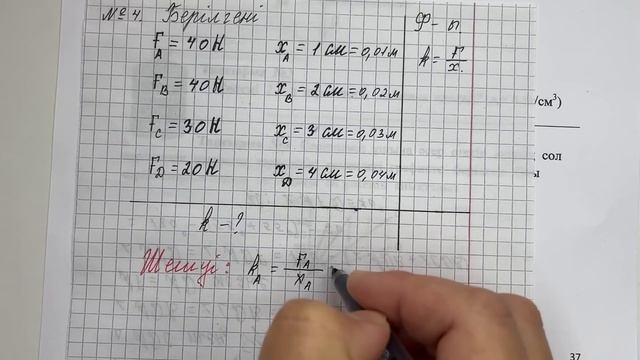 № 4. Берілгені Ф-ы
F_A = 40 Н x_A = 1 см = 0,01 м k = F/x.
F_B = 40 Н x_B = 2 см = 0,02 м
F_C = 30 Н x_C = 3 см = 0,03 м
F_D = 20 Н x_D = 4 см = 0,04 м
k - ?
Шешуі: k_A = F_A/x_A
/см³)
сол
ы
37